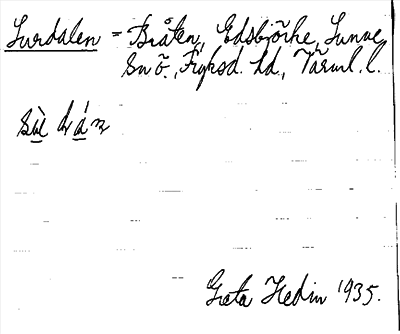 Surdalen - Bråten, Edsbjörke, Sunne
Sn ö., Fryksd. hd., Värml. l.
Greta Hedin 1935.